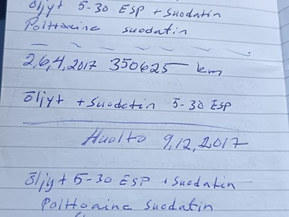 öljyt 5-30 ESP + Suodatin
Polttoaine suodatin
26,4,2017 350625 km
öljyt + Suodatin 5-30 ESP
Huolto 9,12,2017
öljyt 5-30 ESP + Suodatin
Polttoaine Suodatin